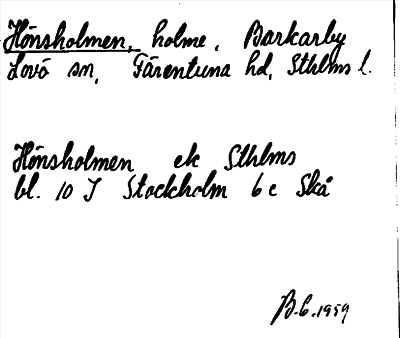 Hönsholmen, holme, Barkarby
Lovö sn, Färentuna hd, Sthlms l.
Hönsholmen ek Sthlms
bl. 10 J Stockholm 6 c Skå
B.C. 1959